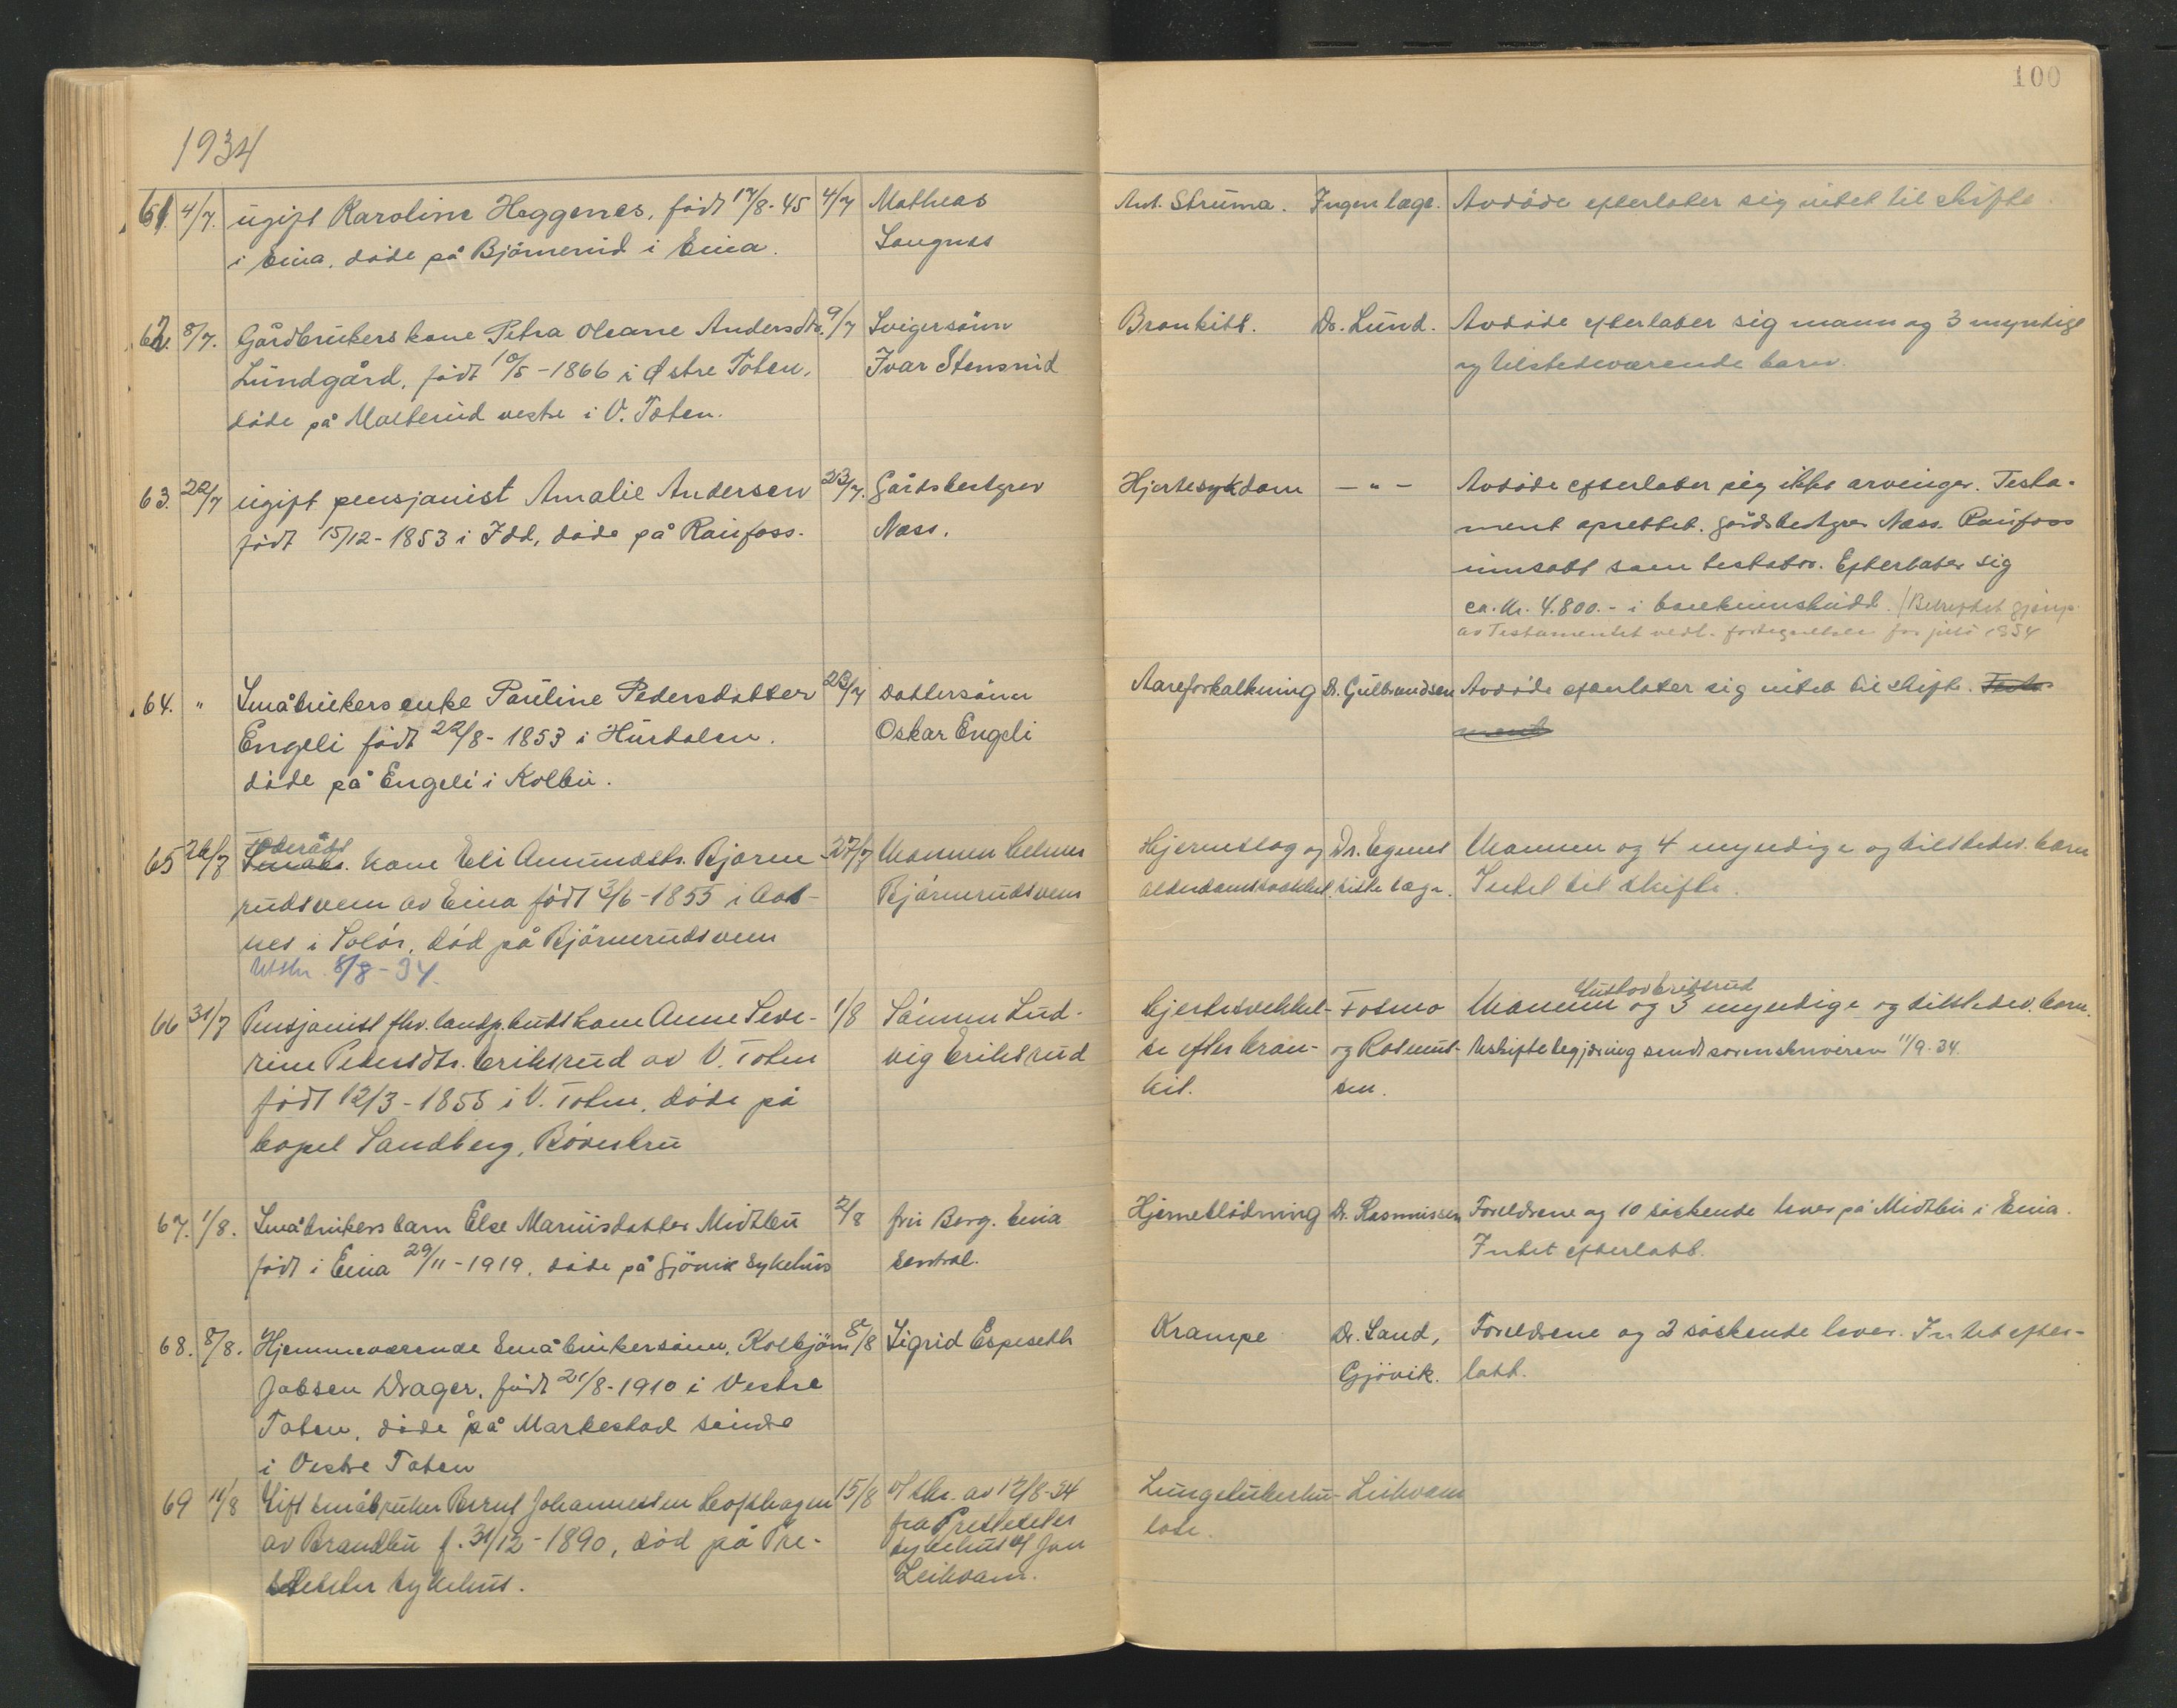 100
1934
61. 4/7. ugift Karoline Heggenes, født 17/8-45 4/7 Matheas Ant. Struma. Ingen læge. Avdøde efterlater sig intet til skifte.
i Eina, døde på Bjørnerud i Eina. Laugnes
62. 8/7. Gårdbrukers kone Petra Oleane Andersdtr. 9/7 Svigersønn Bronkitt. Dr. Lund. Avdøde efterlater sig mann og 3 myndige
Lundgård, født 10/5-1866 i Østre Toten, Ivar Stensrud og tilstedeværende barn.
døde på Malterud vestre i V. Toten.
63. 22/7 ugift pensjonist Amalie Andersen 23/7. Gårdsbestyrer Hjertesykdom —"— Avdøde efterlater sig ikke arvinger. Testa-
født 15/12-1853 i Idd, døde på Raufoss. Næss. ment oprettet. Gårdsbestyrer Næss. Raufoss
innsatt som testator. Efterlater sig
ca. kr. 4.800.- i bankinnskudd. (Bekreftet gjenp.
av Testamentet vedl. fortegnelsen for juli 1934
64. " Småbrukers enke Pauline Pedersdatter 23/7 Dattersønn Aareforkalkning Dr. Gulbrandsen Avdøde efterlater sig intet til skifte. Testa-
Engeli født 22/8-1853 i Hurdalen. Oskar Engeli ment
døde på Engeli i Kolbu.
65 26/7 Føderåds kone Eli Amundsdtr. Bjørne- 27/7 Mannen Helmer Hjerneslag og Dr. Egnes Mannen og 4 myndige og tilstedev. barn
rudsveen av Eina født 3/6-1855 i Aas- Bjørnerudsveen alderdomssvakhet. siste læge. Intet til skifte.
nes i Solør, død på Bjørnerudsveen
Utskr. 8/8-34.
66 31/7 Pensjonist fhv. landp.buds kone Anne Seve- 1/8 Sønnen Lud- Hjertesvekkel- Fosmo Mannen Gustav Eriksrud og 3 myndige og tilstedev. barn.
rine Pedersdtr. Eriksrud av V. Toten vig Eriksrud se efter bron- og Rasmus- Uskiftebegjæring sendt sorenskriveren 11/9-34.
født 12/3-1855 i V. Toten, døde på kit. sen.
kapel Sandberg, Bøverbru
67. 1/8. Småbrukers barn Else Mariusdatter Midtbu 2/8 fru Berg. Eina Hjerneblødning Dr. Rasmussen Foreldrene og 10 søskende lever på Midtbu i Eina.
født i Eina 29/11-1919, døde på Gjøvik sykehus sentral. Intet efterlatt.
68. 8/8. Hjemmeværende småbrukersønn, Kolbjørn 8/8 Sigrid Espeseth Krampe Dr. Sand, Foreldrene og 2 søskende lever. Intet efter-
Jobsen Drager, født 21/8-1910 i Vestre Gjøvik. latt.
Toten, døde på Markestad søndre
i Vestre Toten
69 11/8 Gift småbruker Bernt Johannessen Hofshagen 15/8 v/ skr. av 12/8-34 Lungetuberku- Leikvam
av Brandbu f. 31/12-1890, død på Pre- fra Presteseter lose.
steseter sykehus. sykehus v/ Jon
Leikvam.